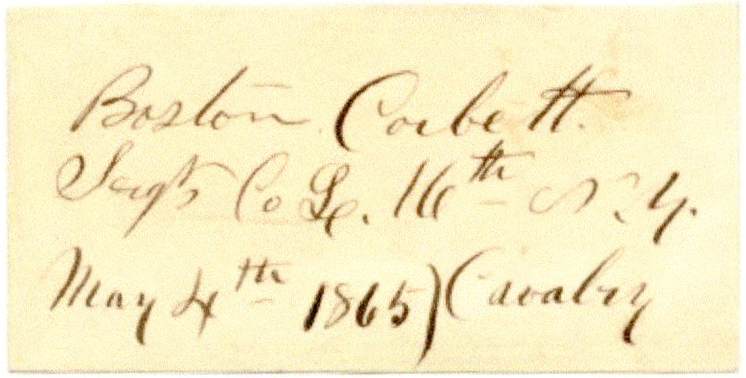 Boston Corbett.
Sergt Co L. 16th N.Y.
May 4th 1865) Cavalry